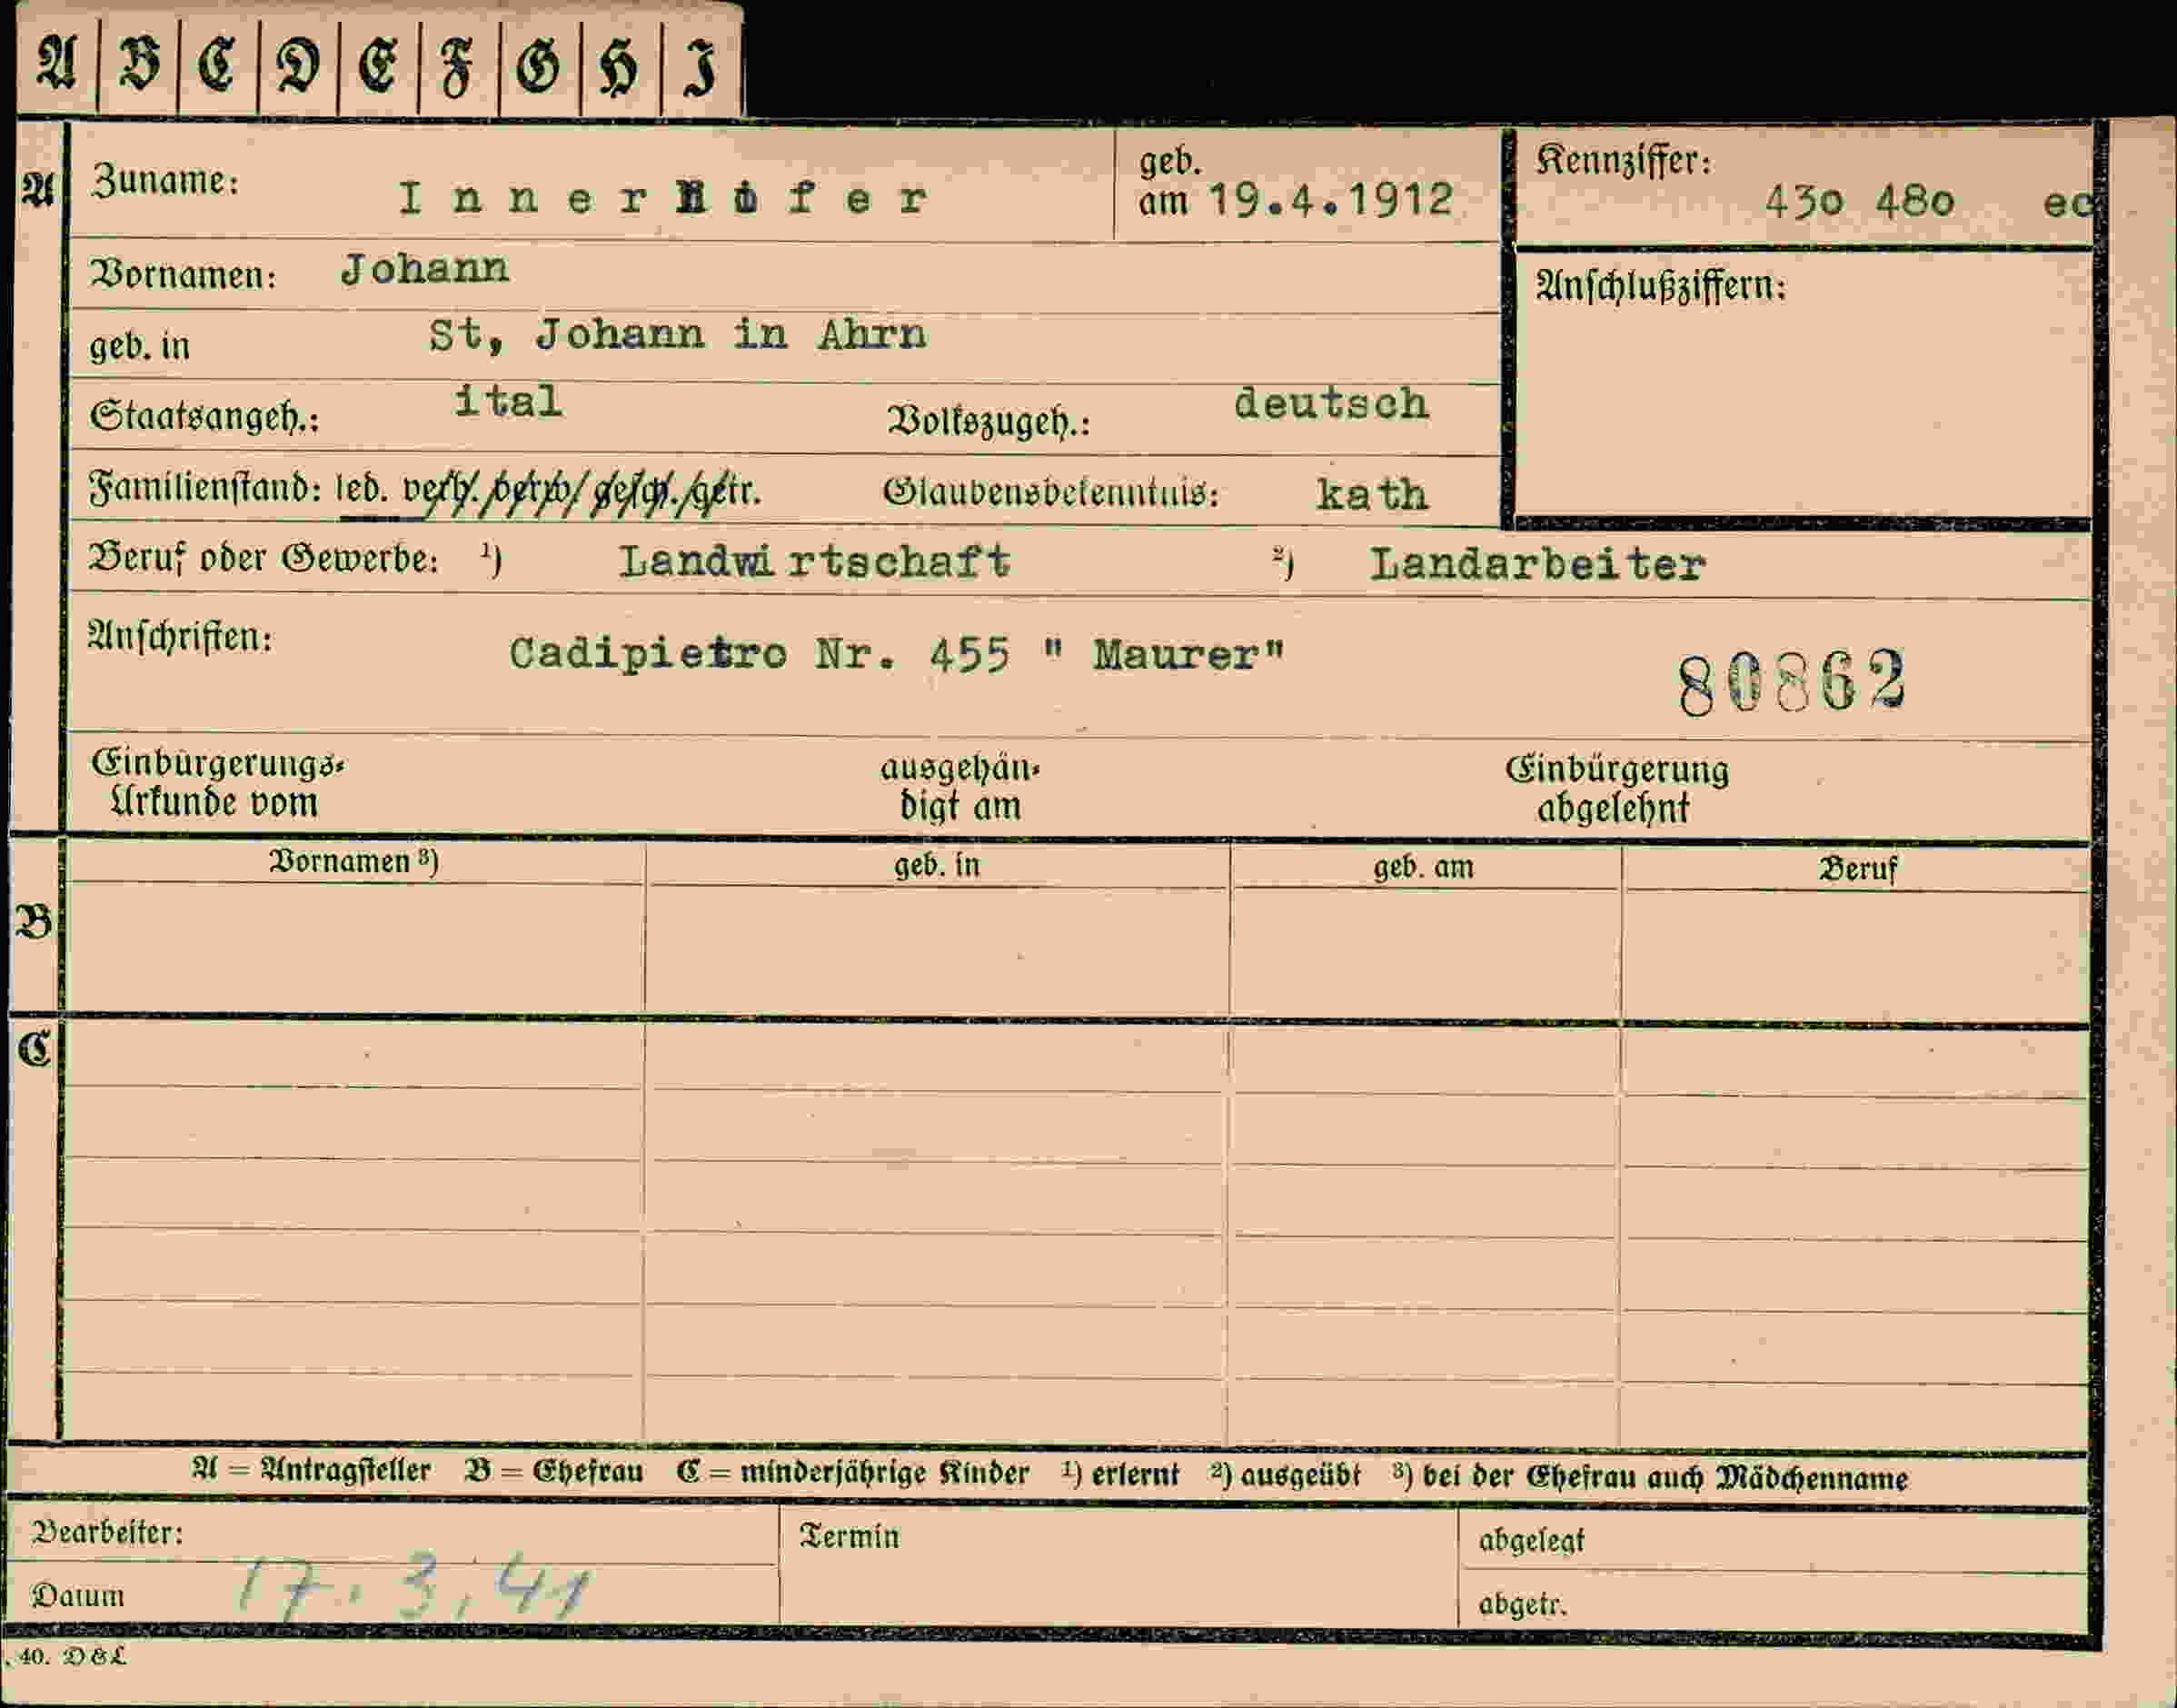 A B C D E F G H I
A Zuname: Innerhofer geb. am 19.4.1912 Kennziffer: 430 480
Vornamen: Johann Anschlußziffern:
geb. in St, Johann in Ahrn
Staatsangeh.: ital Volkszugeh.: deutsch
Familienstand: led. verh. verw. gesch. getr. Glaubensbekenntnis: kath
Beruf oder Gewerbe: ¹) Landwirtschaft ²) Landarbeiter
Anschriften: Cadipietro Nr. 455 " Maurer" 80862
Einbürgerungs- ausgehän- Einbürgerung
Urkunde vom digt am abgelehnt
Vornamen ³) geb. in geb. am Beruf
B
C
A = Antragsteller B = Ehefrau C = minderjährige Kinder ¹) erlernt ²) ausgeübt ³) bei der Ehefrau auch Mädchenname
Bearbeiter: Termin abgelegt
Datum 17.3.41 abgetr.
. 40. D & L